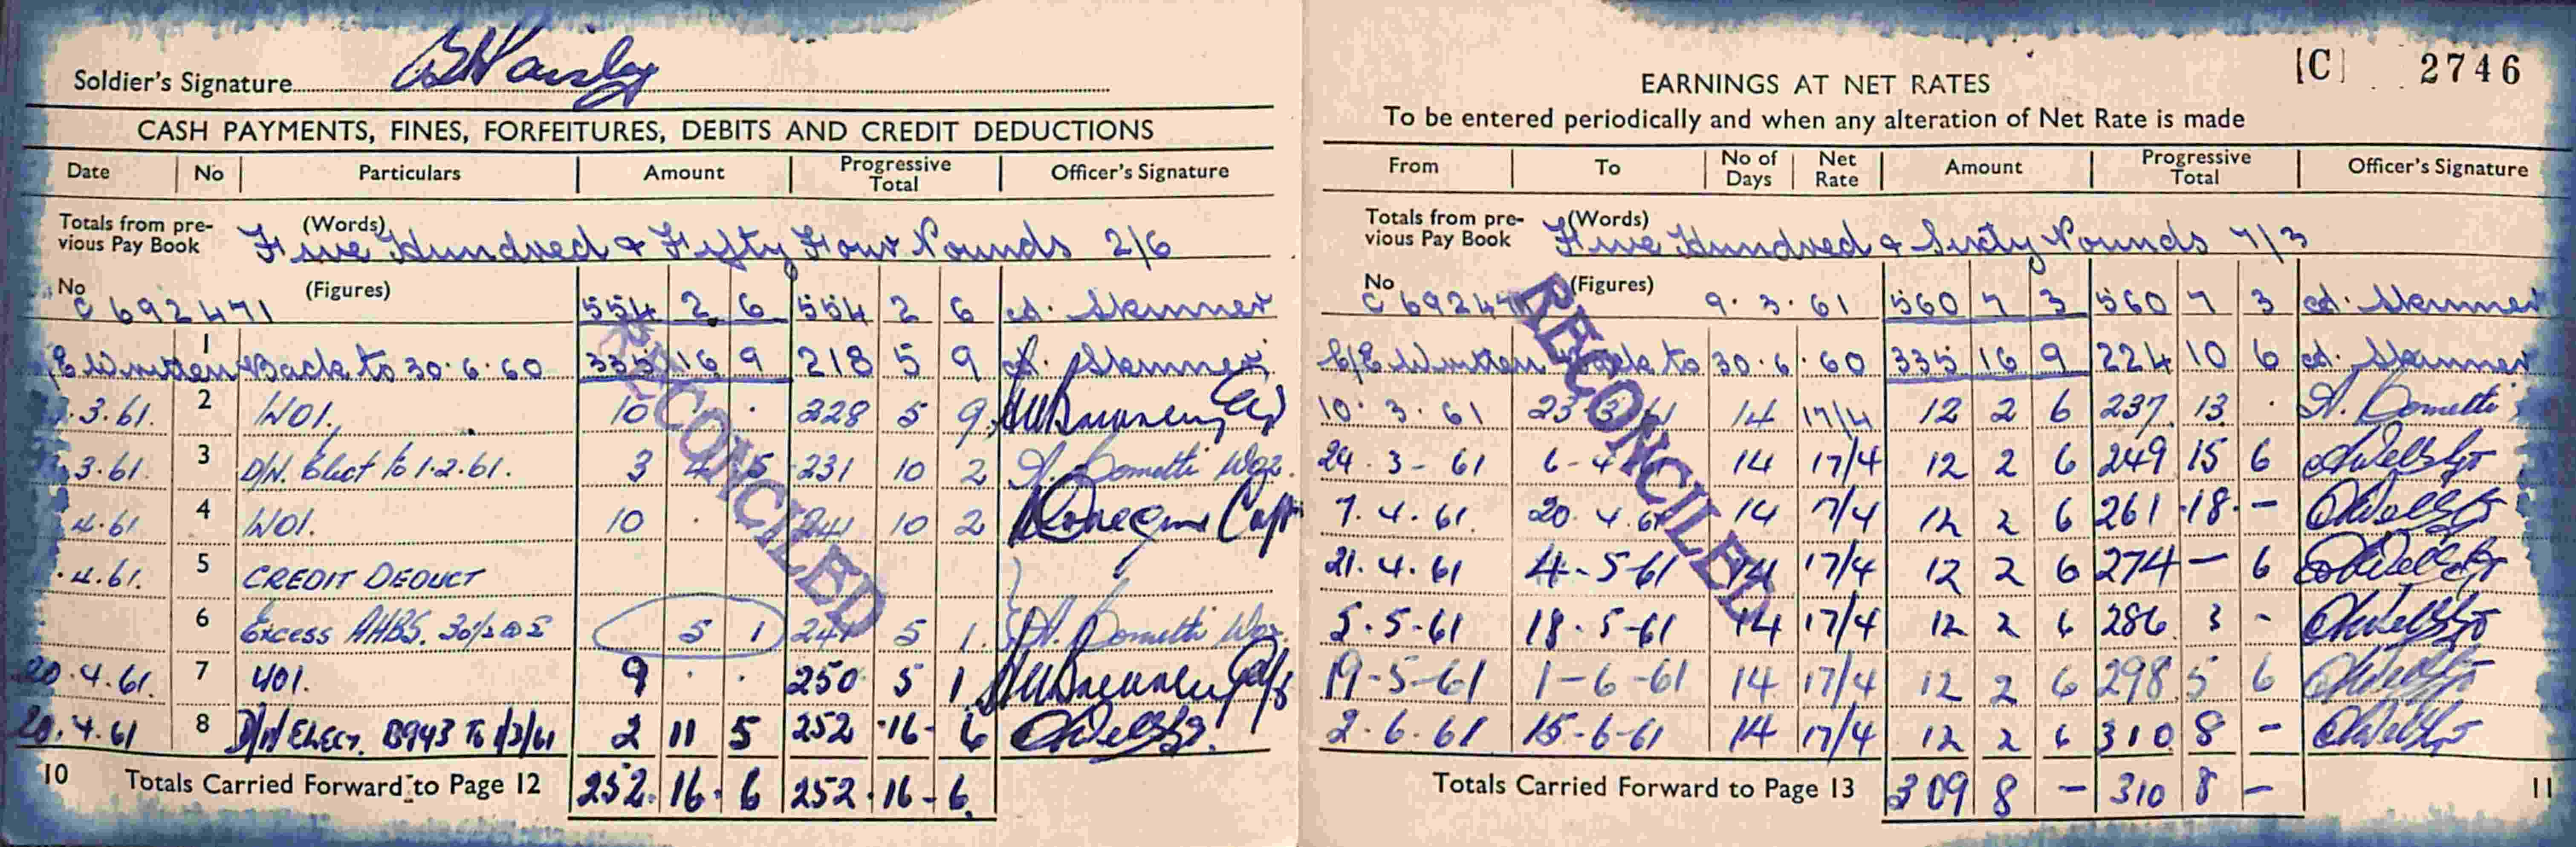 Soldier's Signature
CASH PAYMENTS, FINES, FORFEITURES, DEBITS AND CREDIT DEDUCTIONS
Date No Particulars Amount Progressive Total Officer's Signature
Totals from previous Pay Book (Words) Five Hundred & Fifty Four Pounds 2/6
No C 692471 (Figures) 554 2 6 554 2 6 A. Skinner
1 C/E Written Back to 30.6.60 335 16 9 218 5 9 A. Skinner
.3.61. 2 WO1. 10 . . 228 5 9
3.61. 3 D/N. Elect to 1.2.61. 3 4 5 231 10 2 A. Cometti WO2.
4.61 4 WO1. 10 . . 241 10 2 Capt
.4.61. 5 CREDIT DEDUCT
6 Excess AHBS. 5 1 241 5 1. A. Cometti WO2.
20.4.61. 7 401. 9 . . 250 5 1
20.4.61 8 D/N ELECT. B943 TO 1/3/61 2 11 5 252 16 6
10 Totals Carried Forward to Page 12 252 16 6 252 16 6
RECONCILED
[C] 2746
EARNINGS AT NET RATES
To be entered periodically and when any alteration of Net Rate is made
From To No of Days Net Rate Amount Progressive Total Officer's Signature
Totals from previous Pay Book (Words) Five Hundred & Sixty Pounds 7/3
No C 69247 (Figures) 9.3.61 560 7 3 560 7 3 A. Skinner
C/E Written Back to 30.6.60 335 16 9 224 10 6 A. Skinner
10.3.61 23.3.61 14 17/4 12 2 6 237 13 . A. Cometti
24.3-61 6-4 14 17/4 12 2 6 249 15 6
7.4.61. 20.4.61 14 17/4 12 2 6 261 18 -
21.4.61 4-5-61 14 17/4 12 2 6 274 - 6
5.5-61 18.5-61 14 17/4 12 2 6 286 3 -
19-5-61 1-6-61 14 17/4 12 2 6 298 5 6
2.6.61 15-6-61 14 17/4 12 2 6 310 8 -
Totals Carried Forward to Page 13 309 8 - 310 8 - 11
RECONCILED